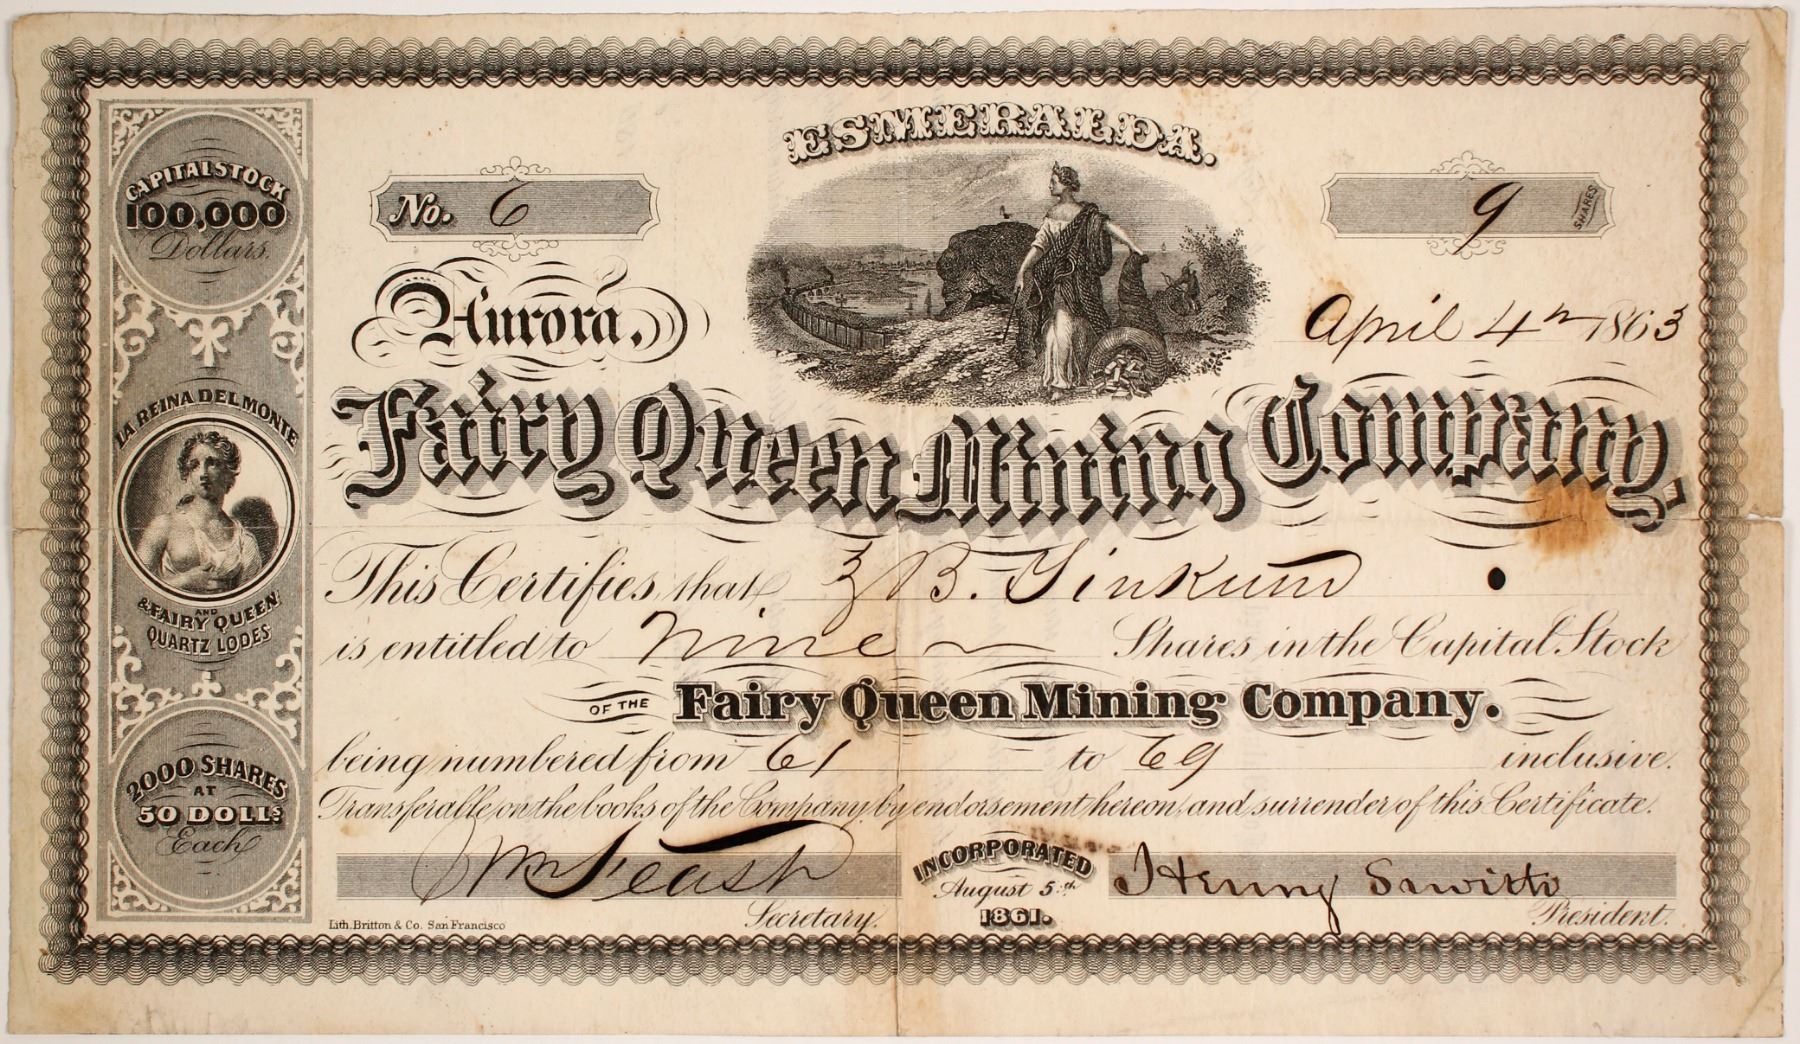 ESMERALDA.
No. 6
9 SHARES
Aurora, April 4th 1863
Fairy Queen Mining Company,
This Certifies that B. Tinkum
is entitled to Nine Shares in the Capital Stock
OF THE Fairy Queen Mining Company.
being numbered from 61 to 69 inclusive.
Transferable on the books of the Company by endorsement hereon, and surrender of this Certificate.
Wm
Secretary.
INCORPORATED
August 5th
1861.
Henry
President.
Lith. Britton & Co. San Francisco
CAPITAL STOCK
100,000
Dollars.
LA REINA DEL MONTE
AND
& FAIRY QUEEN
QUARTZ LODES
2000 SHARES
AT
50 DOLLS
Each